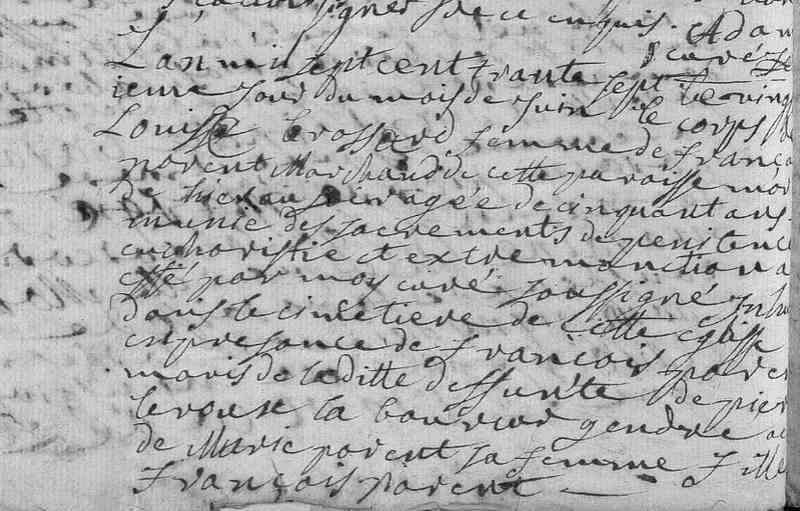 signer de ce enquis. Adam
es curé
Lan mil sept cent trante sept le ving
ieme jour du mois de juin le corps
Louisse Brossard femme de franço
parent Marchand de cette paroisse mor
de hier au soir agée de cinquant ans
munie des sacrements de penitence
eucharistie et extre monction a
esté par moy curé soussigné Inhu
dans le cimetiere de cette eglisse
en presance de francois paren
maris de laditte deffunte de pier
lerouxe laboureur gendre
de Marie parent sa femme fille
François parent